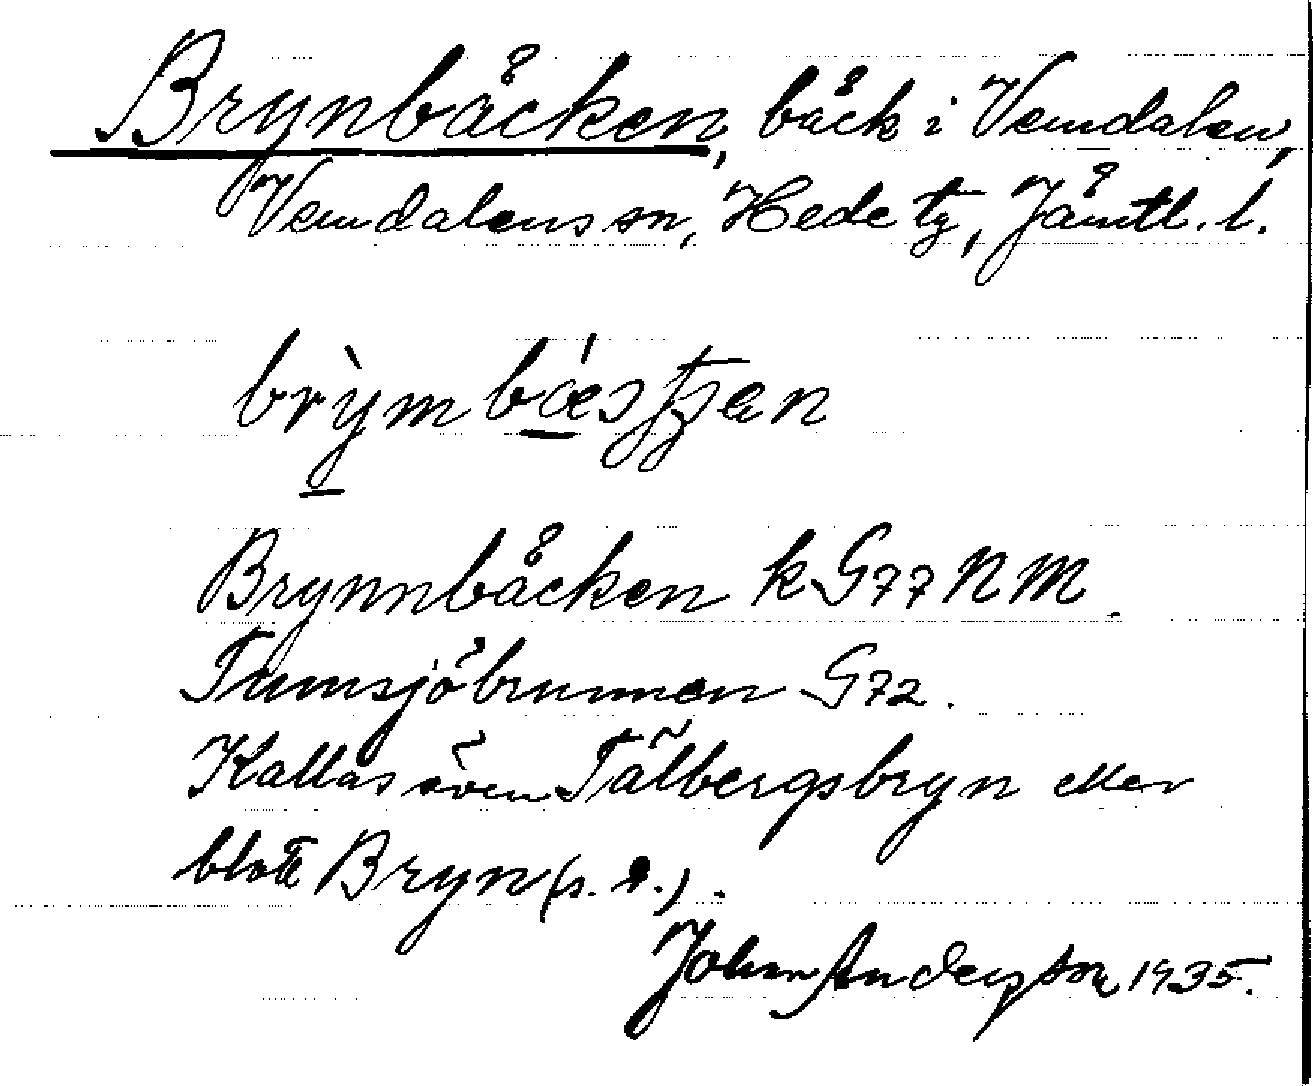 Brynbäcken, bäck i Vemdalen,
Vemdalens sn, Hede tg, Jämtl. l.
Brynnbäcken k G77 NM.
Tumsjöbrunnen G72.
Kallas även Tälbergsbryn eller
blott Bryn (s. d.).
John Andersson 1935.